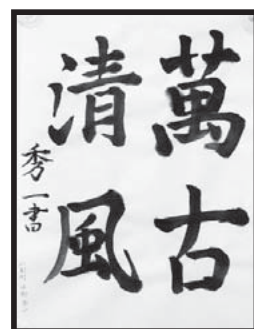 萬古
清風
秀一書